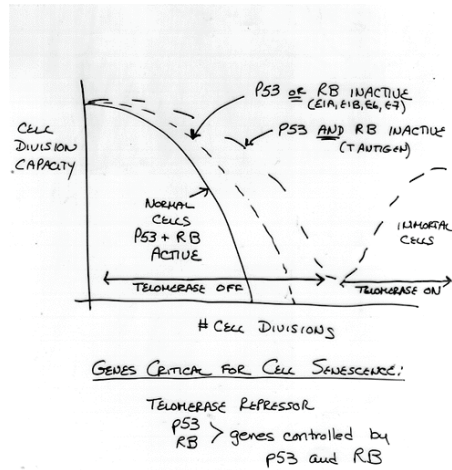 P53 or RB INACTIVE
(E1A, E1B, E6, E7)
P53 AND RB INACTIVE
(T ANTIGEN)
CELL
DIVISION
CAPACITY
NORMAL
CELLS
P53 + RB
ACTIVE
IMMORTAL
CELLS
TELOMERASE OFF
TELOMERASE ON
# CELL DIVISIONS
GENES CRITICAL FOR CELL SENESCENCE:
TELOMERASE REPRESSOR
P53
RB > genes controlled by
P53 and RB